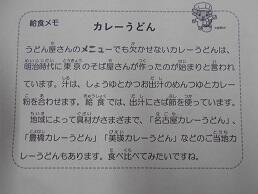 給食メモ
カレーうどん
うどん屋さんのメニューでも欠かせないカレーうどんは、
明治時代に東京のそば屋さんが作ったのが始まりと言われ
ています。汁は、しょうゆとかつお出汁のめんつゆとカレー
粉を合わせます。給食では、出汁にさば節を使っています。
地域によって具材がさまざまで、「名古屋カレーうどん」、
「豊橋カレーうどん」「美瑛カレーうどん」などのご当地カ
レーうどんもあります。食べ比べてみたいですね。